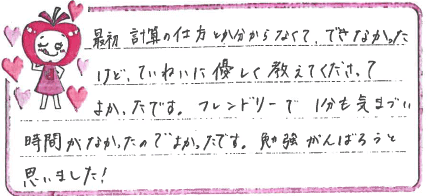 最初 計算の仕方とか分からなくて、できなかった
けど、ていねいに優しく教えてくださって
よかったです。フレンドリーで 1分も気まづい
時間がなかったのでよかったです。勉強がんばろうと
思いました!